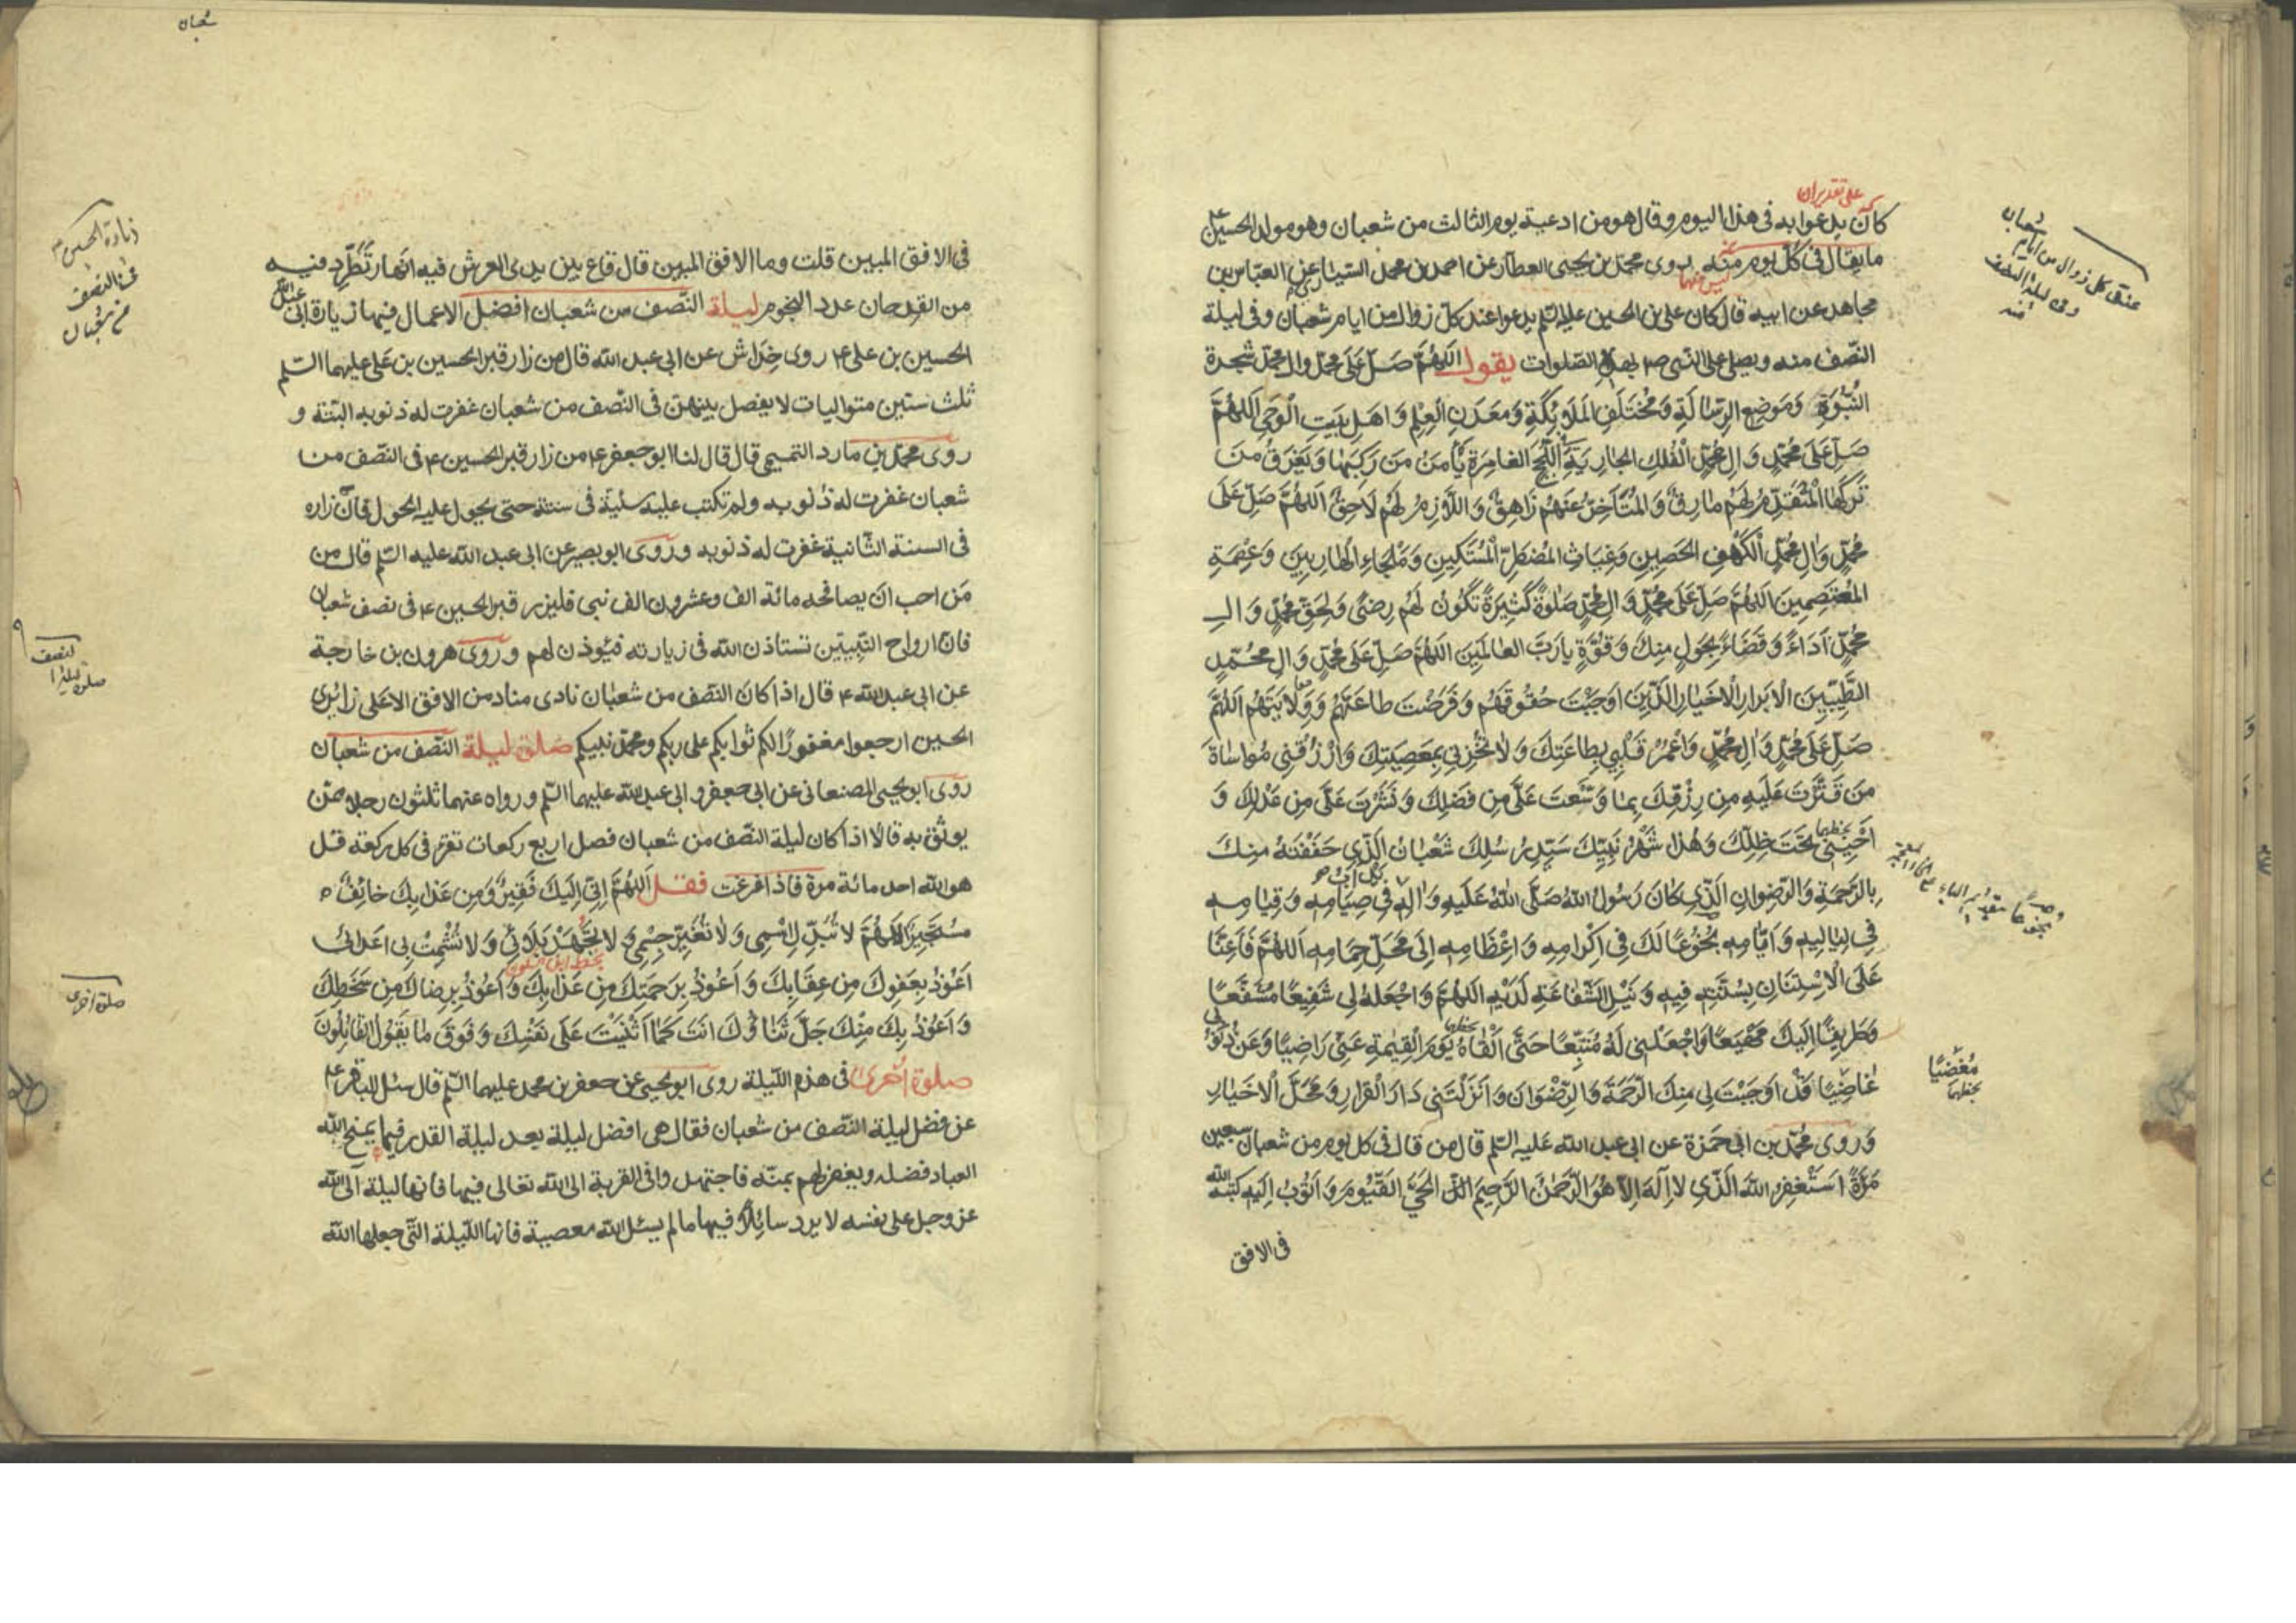 على تقدير ان
كان يدعوا به فى هذا اليوم وقال هو من ادعية يوم الثالث من شعبان وهو مولد الحسين ع
ما يقال فى كل يوم منه روى محمد بن يحيى العطار عن احمد بن محمد السيارى عن العباس بن
مجاهد عن ابيه قال كان على بن الحسين عليه السلم يدعوا عند كل زوال من ايام شعبان وفى ليلة
النصف منه ويصلى على النبى ص بهذه الصلوات يقول اَللّهُمَّ صَلِّ عَلَى محمد وال محمد شجرة
النُّبُوَّةِ وَمَوضِعِ الرِّسالَةِ وَمُختَلَفِ المَلائِكَةِ وَمَعدَنِ العِلمِ وَاهلِ بَيتِ الوَحىِ اَللهُمَّ
صَلِّ عَلَى مُحَمَّدٍ وَالِ مُحَمَّدٍ الفُلكِ الجارِيَةِ فى اللُّجَجِ الغامِرَةِ يَأمَنُ مَن رَكِبَها وَيَغرَقُ مَن
تَرَكَها المُتَقَدِّمُ لَهُم مارِقٌ وَالمُتَأَخِّرُ عَنهُم زاهِقٌ وَاللّازِمُ لَهُم لاحِقٌ اَللهُمَّ صَلِّ عَلَى
مُحَمَّدٍ وَالِ مُحَمَّدٍ الكَهفِ الحَصِينِ وَغِياثِ المُضطَرِّ المُستَكِينِ وَمَلجَاءِ الهارِبِينَ وَعِصمَةِ
المُعتَصِمِينَ اَللهُمَّ صَلِّ عَلَى مُحَمَّدٍ وَالِ مُحَمَّدٍ صَلوةً كَثِيرَةً تَكُونُ لَهُم رِضىً وَلِحَقِّ مُحَمَّدٍ وَالِ
مُحَمَّدٍ اَداءً وَقَضاءً بِحَولٍ مِنكَ وَقُوَّةٍ يارَبَّ العالَمِينَ اَللهُمَّ صَلِّ عَلَى مُحَمَّدٍ وَالِ مُحَمَّدٍ
الطَّيِّبِينَ الاَبرارِ الاَخيارِ الَّذِينَ اَوجَبتَ حُقُوقَهُم وَفَرَضتَ طاعَتَهُم وَوَلايَتَهُم اَللهُمَّ
صَلِّ عَلَى مُحَمَّدٍ وَالِ مُحَمَّدٍ وَاعمُر قَلبِى بِطاعَتِكَ وَلا تُخزِنِى بِمَعصِيَتِكَ وَارزُقنِى مُواساةَ
مَن قَتَّرتَ عَلَيهِ مِن رِزقِكَ بِما وَسَّعتَ عَلَىَّ مِن فَضلِكَ وَنَشَرتَ عَلَىَّ مِن عَدلِكَ وَ
اَحيَيتَنِى تَحتَ ظِلِّكَ وَهذا شَهرُ نَبِيِّكَ سَيِّدِ رُسُلِكَ شَعبانُ الَّذِى حَفَفتَهُ مِنكَ
بِالرَّحمَةِ وَالرِّضوانِ الَّذِى كانَ رَسُولُ اللهِ صَلَّى اللهُ عَلَيهِ وَالِهِ فِى صِيامِهِ وَقِيامِهِ
فِى لَيالِيهِ وَاَيّامِهِ بُخُوعًا لَكَ فِى اِكرامِهِ وَاِعظامِهِ اِلَى مَحَلِّ حِمامِهِ اَللهُمَّ فَاَعِنّا
عَلَى الاِستِنانِ بِسُنَّتِهِ فِيهِ وَنَيلِ الشَّفاعَةِ لَدَيهِ اَللهُمَّ وَاجعَلهُ لِى شَفِيعًا مُشَفَّعًا
وَطَرِيقًا اِلَيكَ مَهيَعًا وَاجعَلنِى لَهُ مُتَّبِعًا حَتَّى اَلقاهُ يَومَ القِيمَةِ عَنِّى راضِيًا وَعَن ذُنُوبِى
غاضِيًا قَد اَوجَبتَ لِى مِنكَ الرَّحمَةَ وَالرِّضوانَ وَاَنزَلتَنِى دارَ القَرارِ وَمَحَلَّ الاَخيارِ
وَروى مُحَمَّد بن ابى حَمزة عن ابى عبد الله عَليه السلم قال من قال فى كل يوم من شعبان سبعين
مَرَّةً اَستَغفِرُ اللهَ الَّذِى لا اِلهَ اِلّا هُوَ الرَّحمنُ الرَّحِيمُ الحَىُّ القَيُّومُ وَاَتُوبُ اِلَيهِ كتبه الله
فى الافق
شعبان
عند كل زوال من ايام
وفى ليلة النصف
منه
مُغضِيًا
بخطهما
شعبان
فى الافق المبين قلت وما الافق المبين قال قاع بين يدى العرش فيه انهار تَطَّرِد فيه
من القدحان عدد النجوم ليلة النصف من شعبان افضل الاعمال فيها زيارة ابى عبد الله
الحسين بن على ع روى خِداش عن ابى عبد الله قال من زار قبر الحسين بن على عليهما السلم
ثلث سنين متواليات لا يفصل بينهن فى النصف من شعبان غفرت له ذنوبه البتة و
روى محمد بن مارد التميمى قال قال لنا ابو جعفر ع من زار قبر الحسين ع فى النصف من
شعبان غفرت له ذنوبه ولم تكتب عليه سيئة فى سنته حتى يحول عليه الحول فان زاره
فى السنة الثانية غفرت له ذنوبه وروى ابو بصير عن ابى عبد الله عليه السلم قال من
مَن احب ان يصافحه مائة الف وعشرون الف نبى فليزر قبر الحسين ع فى نصف شعبان
فان ارواح النبيين تستاذن الله فى زيارته فيؤذن لهم وروى هرون بن خارجة
عن ابى عبد الله ع قال اذا كان النصف من شعبان نادى مناد من الافق الاعلى زائرى
الحسين ارجعوا مغفورًا لكم ثوابكم على ربكم ومحمد نبيكم صلوة ليلة النصف من شعبان
روى ابو يحيى الصنعانى عن ابى جعفر وابى عبد الله عليهما السلم ورواه عنهما ثلثون رجلا ممن
يوثق به قالا اذا كان ليلة النصف من شعبان فصل اربع ركعات تقرء فى كل ركعة قل
هو الله احد مائة مرة فاذا فرغت فقل اَللهُمَّ اِنِّى اِلَيكَ فَقِيرٌ وَمِن عَذابِكَ خائِفٌ و
مُستَجِيرٌ اَللهُمَّ لا تُبَدِّل اِسمِى وَلا تُغَيِّر جِسمِى وَلا تَجهَد بَلائِى وَلا تُشمِت بِى اَعدائِى
اَعُوذُ بِعَفوِكَ مِن عِقابِكَ وَاَعُوذُ بِرَحمَتِكَ مِن عَذابِكَ وَاَعُوذُ بِرِضاكَ مِن سَخَطِكَ
وَاَعُوذُ بِكَ مِنكَ جَلَّ ثَناؤُكَ اَنتَ كَما اَثنَيتَ عَلَى نَفسِكَ وَفَوقَ ما يَقُولُ القائِلُونَ
صلوة اُخرى فى هذه الليلة روى ابو يحيى عن جعفر بن محمد عليهما السلم قال سئل الباقر ع
عن فضل ليلة النصف من شعبان فقال هى افضل ليلة بعد ليلة القدر فيها يمنح الله
العباد فضله ويغفر لهم بمنه فاجتهدوا فى القربة الى الله تعالى فيها فانها ليلة آلى الله
عز وجل على نفسه لا يرد سائلًا فيها ما لم يسئل الله معصية فانها الليلة التى جعلها الله
زيارة الحسين ع
فى النصف
من شعبان
صلوة ليلة
النصف
صلوة اخرى